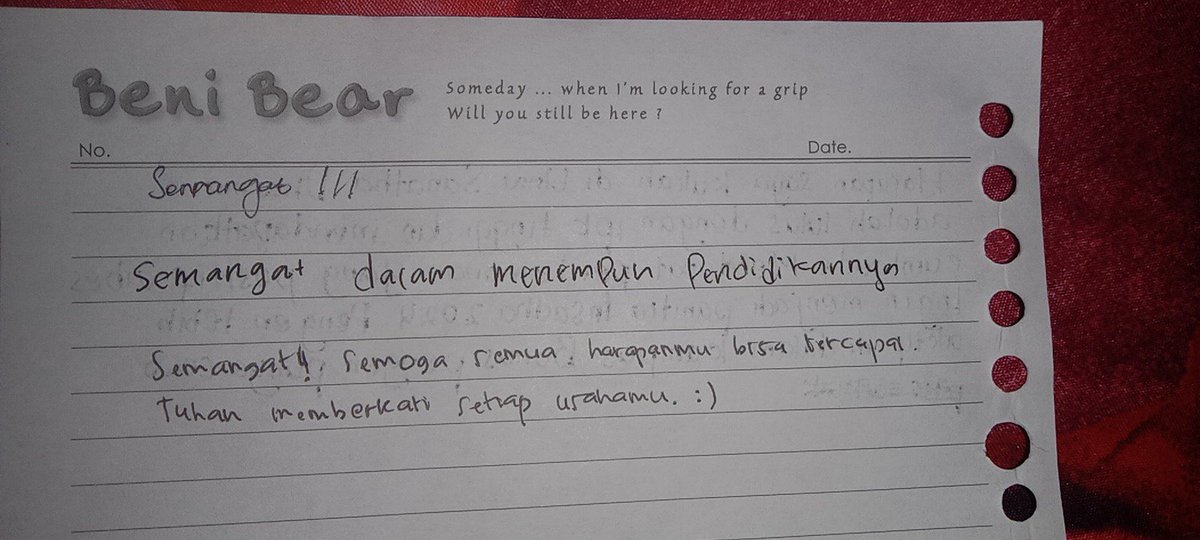 Beni Bear
Someday ... when I'm looking for a grip
Will you still be here ?
No.
Date.
Semangat !!!
Semangat dalam menempuh Pendidikannya
Semangat!! Semoga semua harapanmu bisa tercapai.
Tuhan memberkati setiap usahamu. :)